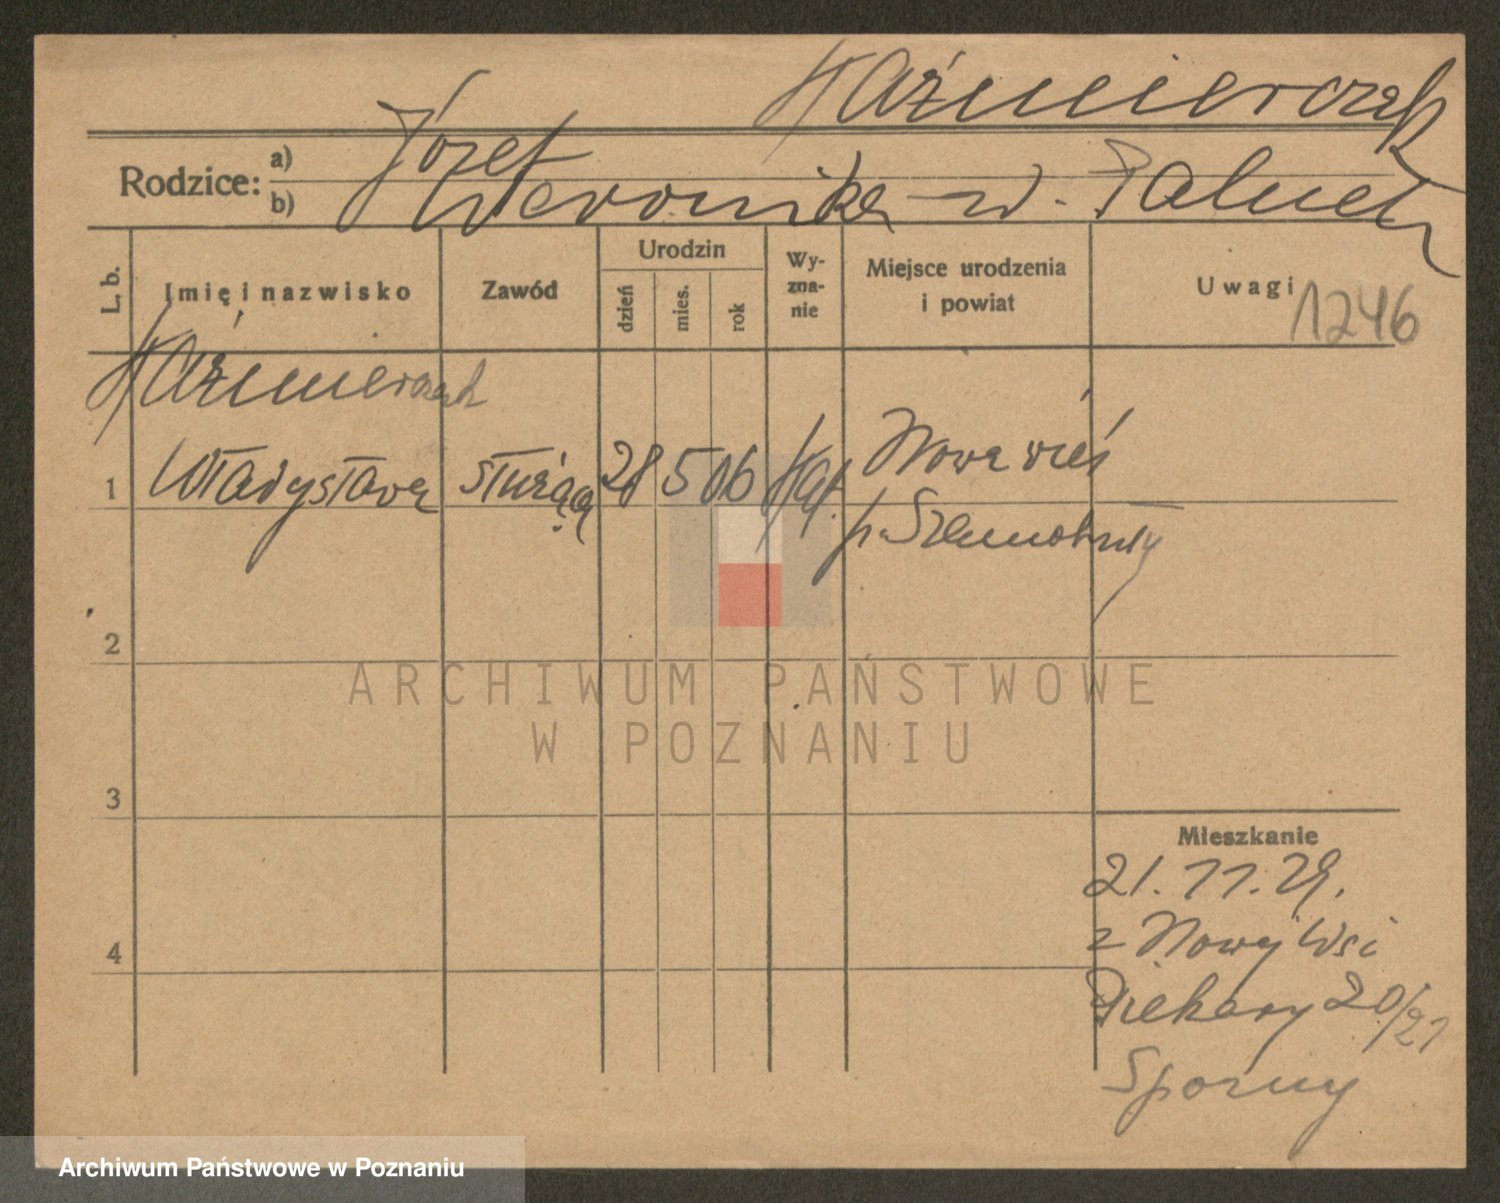 Kaźmierczak
Rodzice:
a) Józef
b) Weronika w. Paluch
L. b.
Imię i nazwisko
Zawód
Urodzin
dzień
mies.
rok
Wy-
zna-
nie
Miejsce urodzenia
i powiat
Uwagi
1246
Kaźmierczak
1 Władysława służąca 28 5 06 Kat. Nowa wieś
p. Szamotuły
2
3
4
Mieszkanie
21. 11. 29.
z Nowej Wsi
Piekary 20/21
Sporny
ARCHIWUM PAŃSTWOWE
W POZNANIU
Archiwum Państwowe w Poznaniu